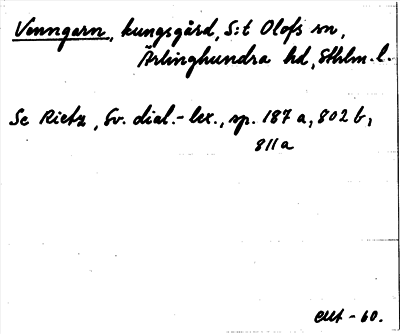 Venngarn, kungsgård, S:t Olofs sn,
Ärlinghundra hd, Sthlm. l.
Se Rietz, Sv. dial.-lex., sp. 187 a, 802 b,
811 a
-60.